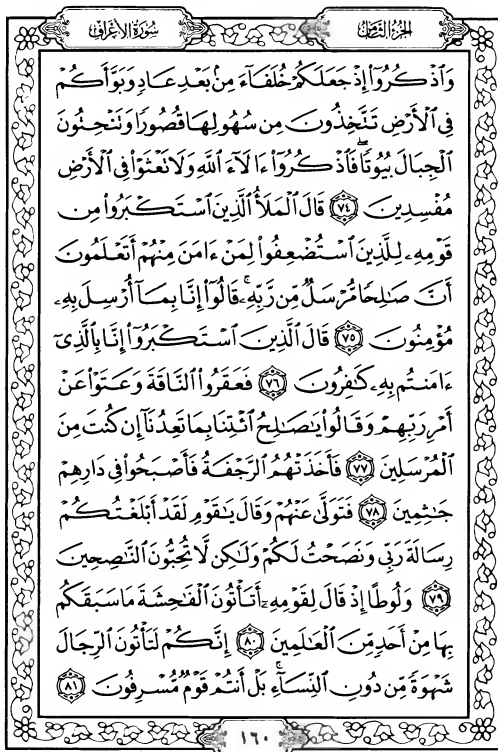 الجزء الثامن
سورة الأعراف
وَٱذۡكُرُوٓاْ إِذۡ جَعَلَكُمۡ خُلَفَآءَ مِنۢ بَعۡدِ عَادٖ وَبَوَّأَكُمۡ
فِي ٱلۡأَرۡضِ تَتَّخِذُونَ مِن سُهُولِهَا قُصُورٗا وَتَنۡحِتُونَ
ٱلۡجِبَالَ بُيُوتٗاۖ فَٱذۡكُرُوٓاْ ءَالَآءَ ٱللَّهِ وَلَا تَعۡثَوۡاْ فِي ٱلۡأَرۡضِ
مُفۡسِدِينَ ٧٤ قَالَ ٱلۡمَلَأُ ٱلَّذِينَ ٱسۡتَكۡبَرُواْ مِن
قَوۡمِهِۦ لِلَّذِينَ ٱسۡتُضۡعِفُواْ لِمَنۡ ءَامَنَ مِنۡهُمۡ أَتَعۡلَمُونَ
أَنَّ صَٰلِحٗا مُّرۡسَلٞ مِّن رَّبِّهِۦۚ قَالُوٓاْ إِنَّا بِمَآ أُرۡسِلَ بِهِۦ
مُؤۡمِنُونَ ٧٥ قَالَ ٱلَّذِينَ ٱسۡتَكۡبَرُوٓاْ إِنَّا بِٱلَّذِيٓ
ءَامَنتُم بِهِۦ كَٰفِرُونَ ٧٦ فَعَقَرُواْ ٱلنَّاقَةَ وَعَتَوۡاْ عَنۡ
أَمۡرِ رَبِّهِمۡ وَقَالُواْ يَٰصَٰلِحُ ٱئۡتِنَا بِمَا تَعِدُنَآ إِن كُنتَ مِنَ
ٱلۡمُرۡسَلِينَ ٧٧ فَأَخَذَتۡهُمُ ٱلرَّجۡفَةُ فَأَصۡبَحُواْ فِي دَارِهِمۡ
جَٰثِمِينَ ٧٨ فَتَوَلَّىٰ عَنۡهُمۡ وَقَالَ يَٰقَوۡمِ لَقَدۡ أَبۡلَغۡتُكُمۡ
رِسَالَةَ رَبِّي وَنَصَحۡتُ لَكُمۡ وَلَٰكِن لَّا تُحِبُّونَ ٱلنَّٰصِحِينَ
٧٩ وَلُوطًا إِذۡ قَالَ لِقَوۡمِهِۦٓ أَتَأۡتُونَ ٱلۡفَٰحِشَةَ مَا سَبَقَكُم
بِهَا مِنۡ أَحَدٖ مِّنَ ٱلۡعَٰلَمِينَ ٨٠ إِنَّكُمۡ لَتَأۡتُونَ ٱلرِّجَالَ
شَهۡوَةٗ مِّن دُونِ ٱلنِّسَآءِۚ بَلۡ أَنتُمۡ قَوۡمٞ مُّسۡرِفُونَ ٨١
١٦٠